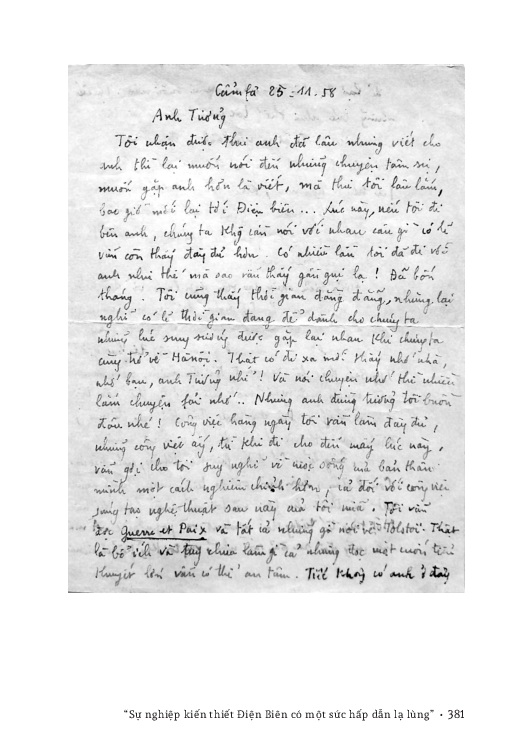 Cẩmfả 25-11-58
Anh Tưởng
Tôi nhận được thư anh đã lâu nhưng viết cho
anh thì lại muốn nói đến những chuyện tâm sự,
muốn gặp anh hơn là viết, mà thư tôi lâu lắm,
bao giờ mới lại tới Điện biên... Lúc này, nếu tôi đi
bên anh, chúng ta kg cần nói với nhau câu gì có lẽ
vẫn còn thấy đầy đủ hơn. Có nhiều lần tôi đã đi với
anh như thế mà sao vẫn thấy gần gụi lạ! Đã bốn
tháng. Tôi cũng thấy thời gian đằng đẵng, nhưng lại
nghĩ có lẽ thời gian đang để dành cho chúng ta
những lúc sung sướng được gặp lại nhau khi chúng ta
cùng trở về Hànội. Thật có đi xa mới thấy nhớ nhà,
nhớ bạn, anh Tưởng nhỉ! Và nói chuyện nhớ thì nhiều
lắm chuyện fải nhớ.. Nhưng anh đừng tưởng tôi buồn
đâu nhé! Công việc hàng ngày tôi vẫn làm đầy đủ,
nhưng công việc ấy, từ khi đi cho đến mấy lúc này,
vẫn gợi cho tôi suy nghĩ về cuộc sống mà bản thân
mình một cách nghiêm chỉnh hơn, cả đối với công việc
sáng tạo nghệ thuật sau này của tôi nữa. Tôi vẫn
đọc Guerre et Paix và tất cả những gì nói về Tolstoi. Thật
là bổ ích và tuy chưa làm gì cả nhưng đọc một cuốn tiểu
thuyết lớn vẫn có thể an tâm. Tiếc không có anh ở đây
“Sự nghiệp kiến thiết Điện Biên có một sức hấp dẫn lạ lùng” • 381